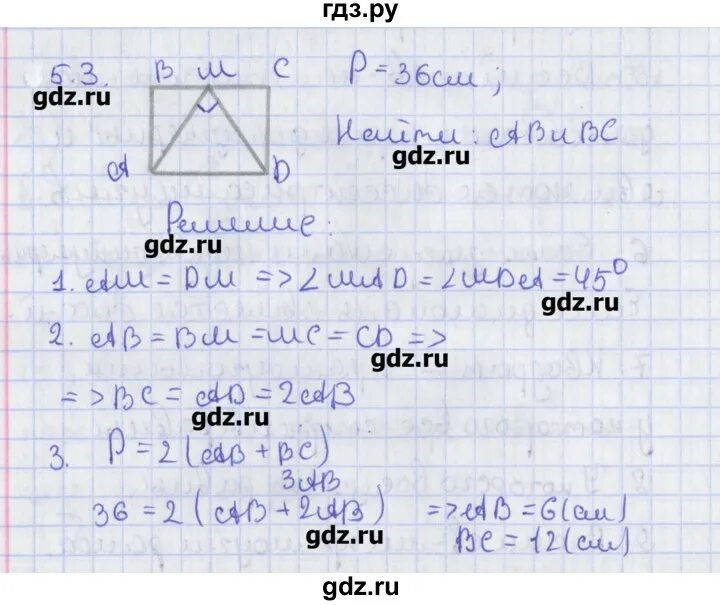 гдз.ру
5.3. B M C P = 36см;
gdz.ru
Найти: AB и BC
gdz.ru
A D
Решение:
gdz.ru
1. AM = DM => ∠MAD = ∠MDA = 45°
gdz.ru
2. AB = BM = MC = CD =>
gdz.ru
=> BC = AD = 2AB
gdz.ru
3. P = 2(AB + BC)
3AB
36 = 2(AB + 2AB) => AB = 6(см)
gdz.ru
BC = 12(см)
gdz.ru